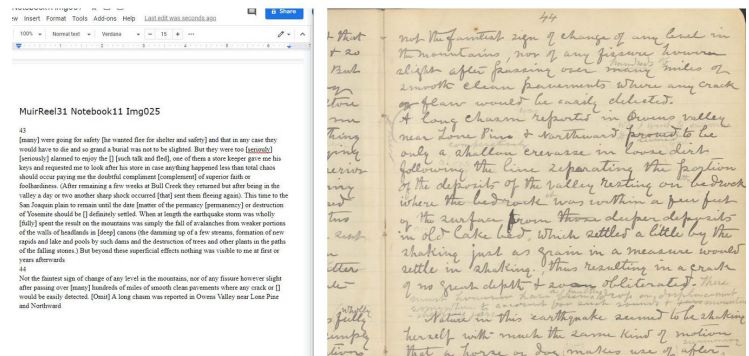 ew Insert Format Tools Add-ons Help Last edit was seconds ago
Share
100% Normal text Verdana 15
MuirReel31 Notebook11 Img025
43
[many] were going for safety [he wanted flee for shelter and safety] and that in any case they
would have to die and so grand a burial was not to be slighted. But they were too [seriouly]
[seriously] alarmed to enjoy the [] [such talk and fled], one of them a store keeper gave me his
keys and requested me to look after his store in case anything happened less than total chaos
should occur paying me the doubtful compliment [complement] of superior faith or
foolhardiness. (After remaining a few weeks at Bull Creek they returned but after being in the
valley a day or two another sharp shock occurred [that] sent then fleeing again). This tune to the
San Joaquin plain to remain until the date [matter of the permaney [permanency] or destruction
of Yosemite should be [] definitely settled. When at length the earthquake storm was wholly
[fully] spent the result on the mountains was simply the fall of avalanches from weaker portions
of the walls of headlands in [deep] canons (the damming up of a few streams, formation of new
rapids and lake and pools by such dams and the destruction of trees and other plants in the paths
of the falling stones.) But beyond these superficial effects nothing was visible to me at first or
years afterwards
44
Not the faintest sign of change of any level in the mountains, nor of any fissure however slight
after passing over [many] hundreds of miles of smooth clean pavements where any crack or []
would be easily detected. [Onsit] A long chasm was reported in Owens Valley near Lone Pine
and Northward
44
not the faintest sign of change of any level in
the mountains, nor of any fissure however
slight after passing over many miles of
hundreds of
smooth clean pavements where any crack
or flaw would be easily detected.
A long chasm reported in Owens valley
near Lone Pine & Northward proved to be
only a shallow crevasse in loose dirt
following the line separating the portion
of the deposits of the valley resting on bedrock
where the bedrock was within a few feet
of the surface from those deeper deposits
in old lake bed, which settled a little by the
shaking just as grain in a measure would
settle in shaking, thus resulting in a crack
of no great depth & soon obliterated. There
Nature in this earthquake seemed to be shaking
herself with much the same kind of motion
that a horse or dog makes use of after